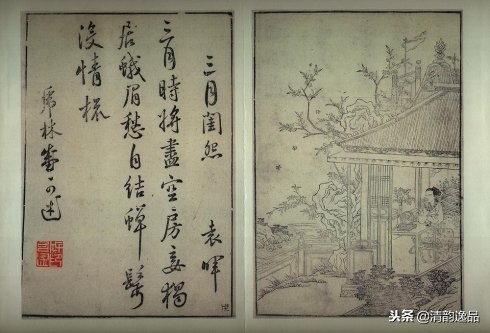 三月閨怨 袁暉
三月時將盡空房妾獨
居蛾眉愁自結蟬鬢
沒情梳
虎林
头条 @清韵逸品